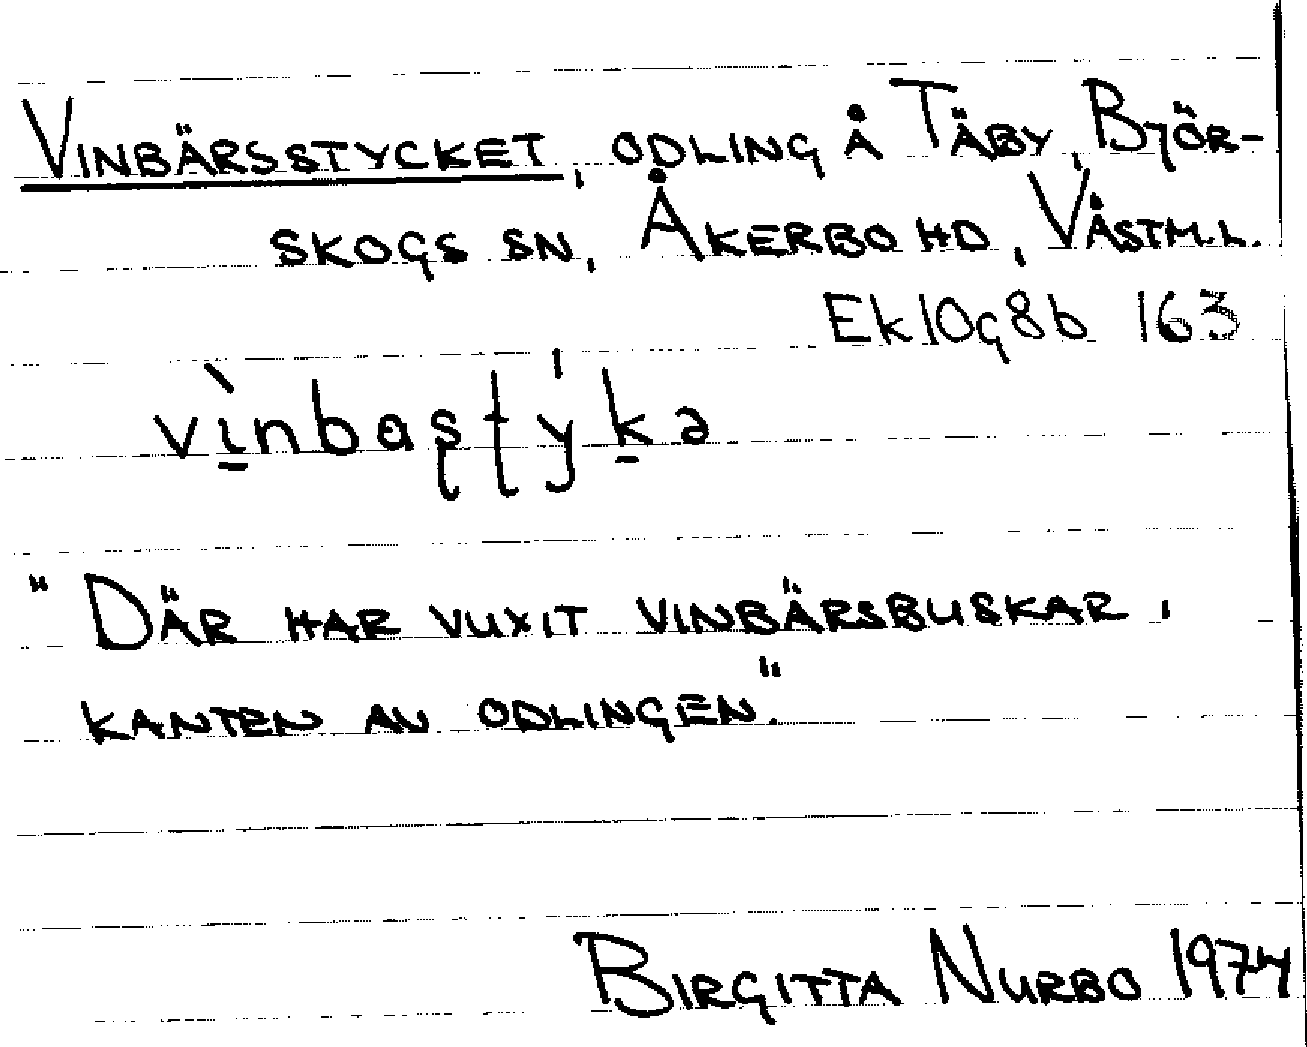 VINBÄRSSTYCKET, ODLING Å TÄBY, BJÖR-
SKOGS SN, ÅKERBO HD, VÄSTM.L.
Ek 10g8b 163
vìnbaʂʈýkə
"DÄR HAR VUXIT VINBÄRSBUSKAR I
KANTEN AV ODLINGEN."
BIRGITTA NURBO 1974